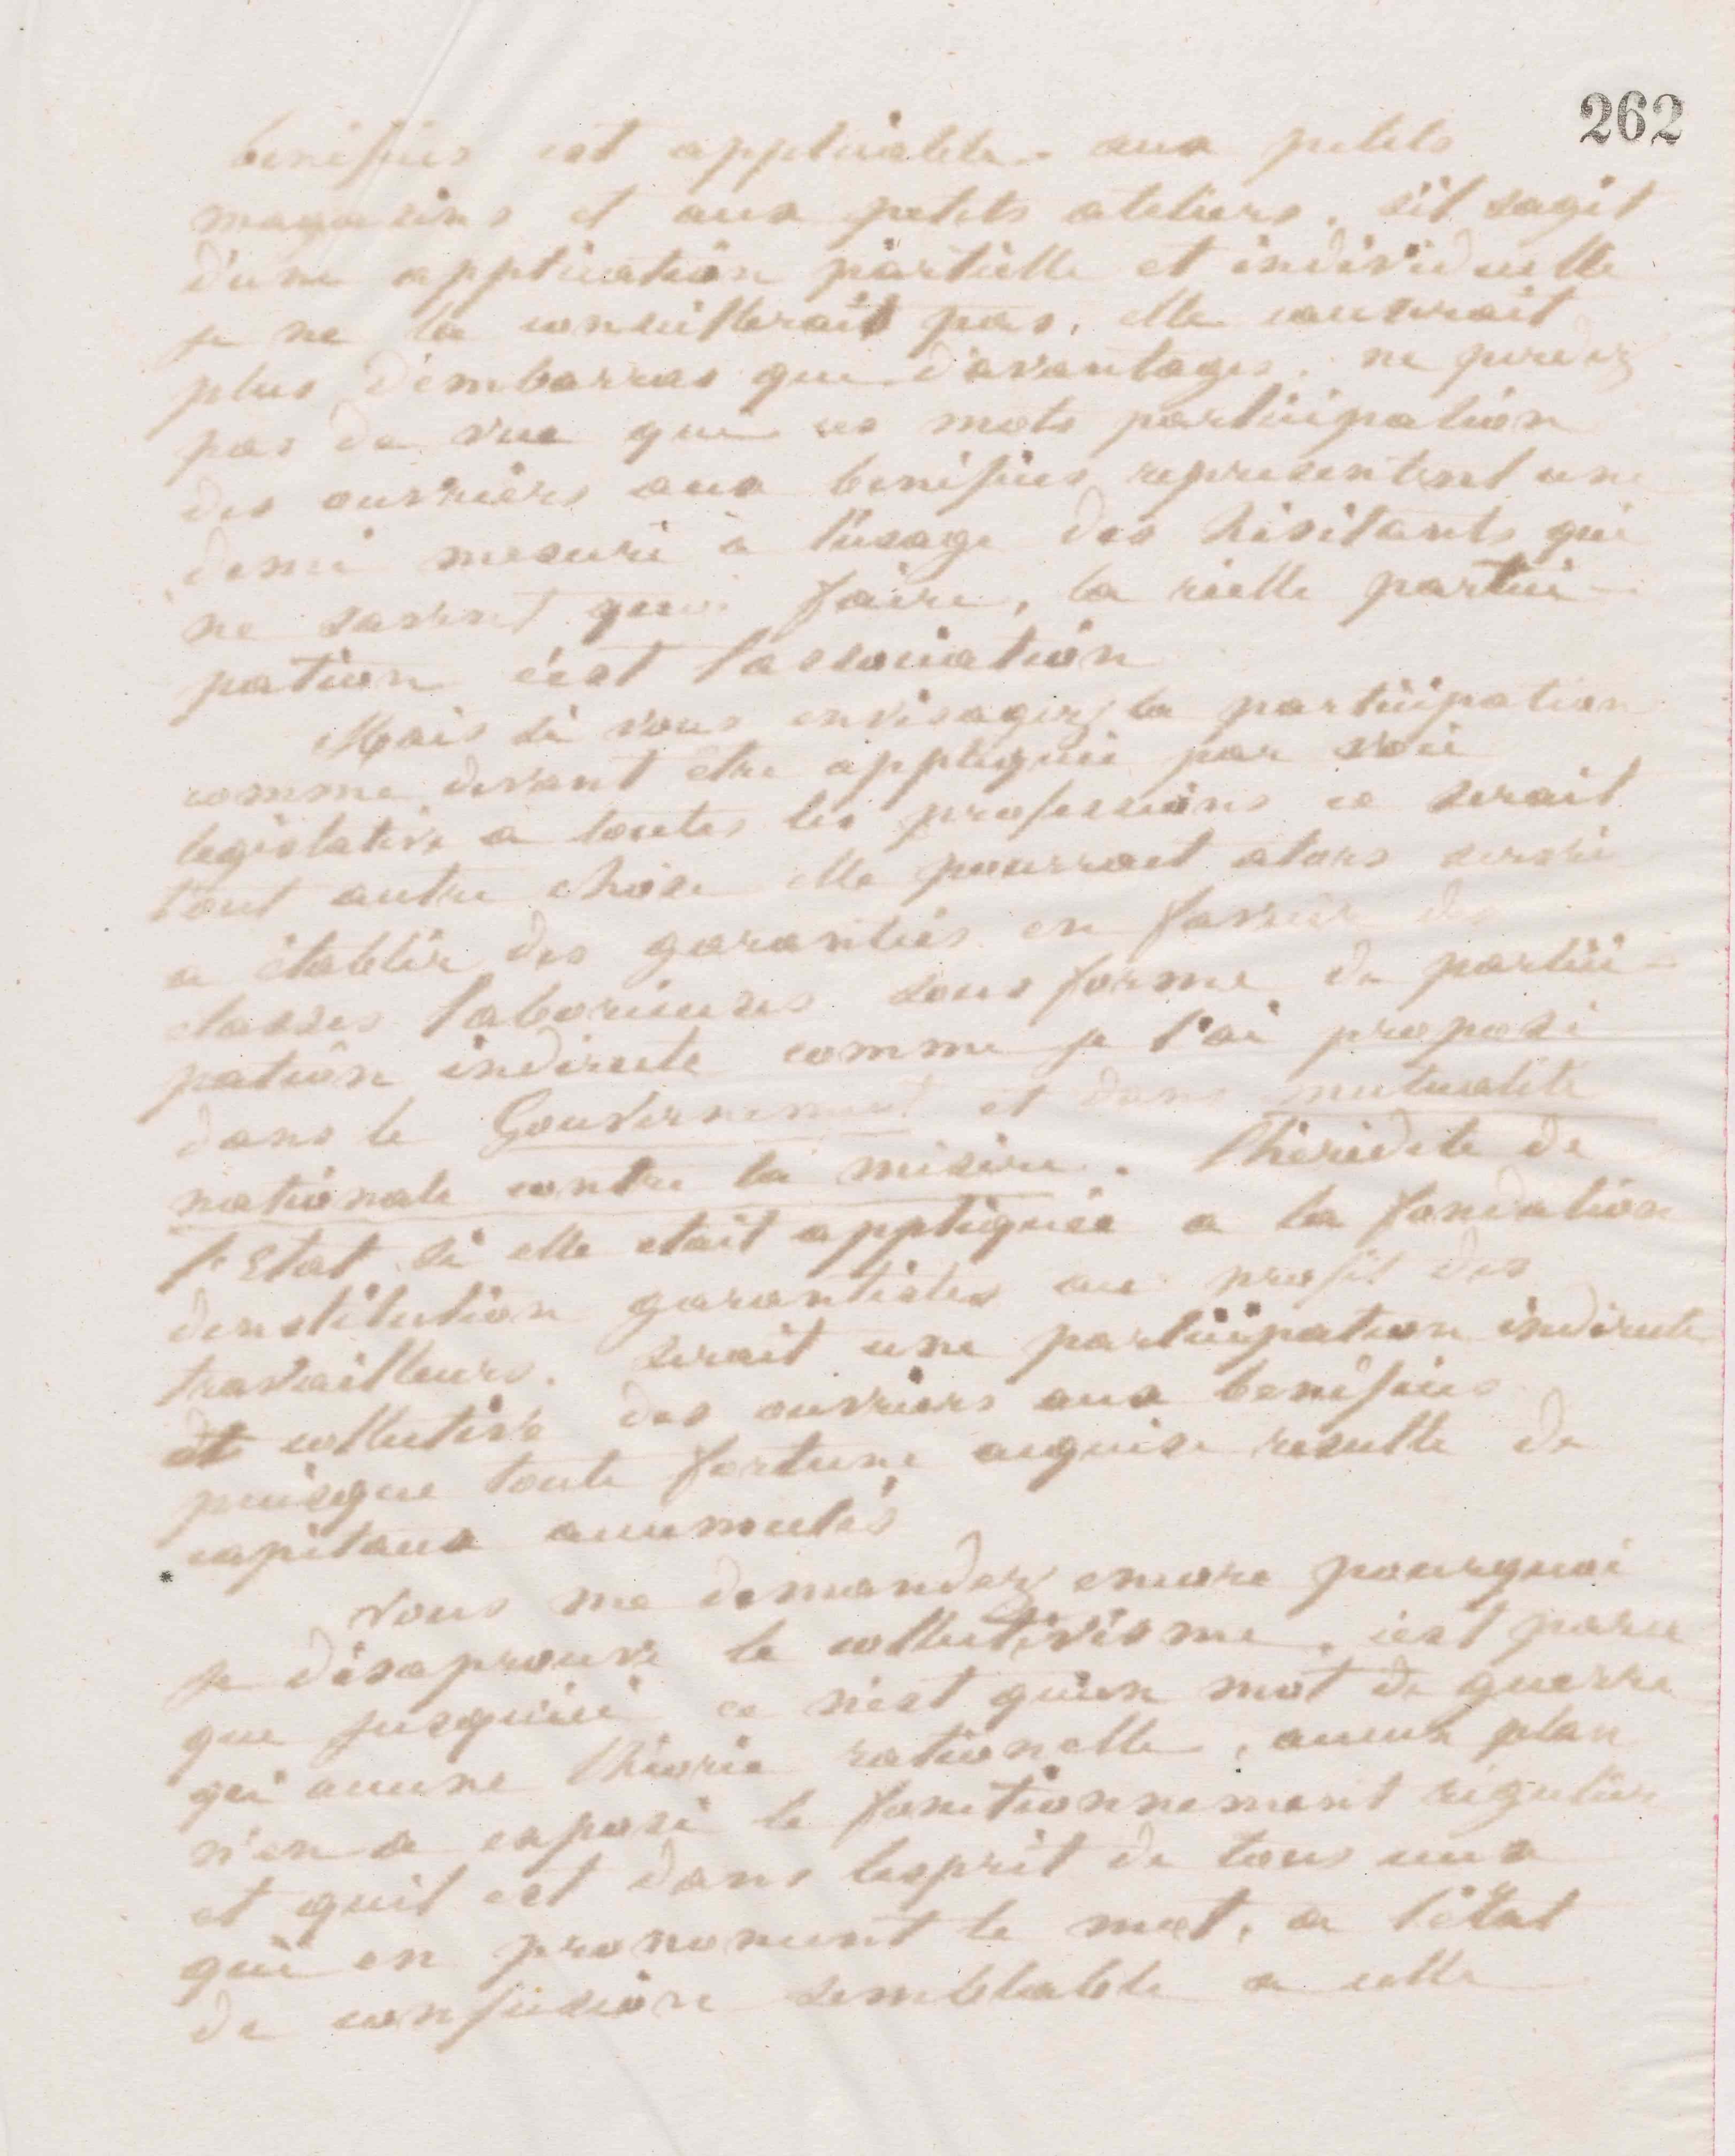 262
benefices est applicable aux petits
magasins et aux petits ateliers. s'il sagit
d'une application partielle et individuelle
je ne la conseillerait pas, elle causerait
plus d'embarras que d'avantages. ne perdez
pas de vue que ces mots participation
des ouvriers aux benefices representent une
demi mesure à l'usage des hésitants qui
ne savent que faire, la réelle partici-
pation c'est l'association
Mais si vous envisagez la participation
comme devant être appliquée par voie
legislative a toutes les professions ce serait
tout autre chose elle pourrait alors servir
a établir des garanties en faveur des
classes laborieuses sous forme de partici-
pation indirecte comme je l'ai proposé
dans le Gouvernement et dans mutualité
nationale contre la misère. l'hérédité de
l'Etat si elle etait appliquée a la fondation
dinstitution garantistes au profit des
travailleurs. serait une participation indirecte
et collective des ouvriers aux benéfices
puisque toute fortune acquise resulte de
capitaux accumulés
Vous me demandez encore pourquoi
je désaprouve le collectivisme, c'est parce
que jusqu'ici ce n'est qu'un mot de guerre
qui aucune théorie rationelle, aucun plan
n'en a exposé le fonctionnement régulier
et quil est dans lesprit de tous ceux
qui en prononcent le mot, a l'état
de confusion semblable a celle